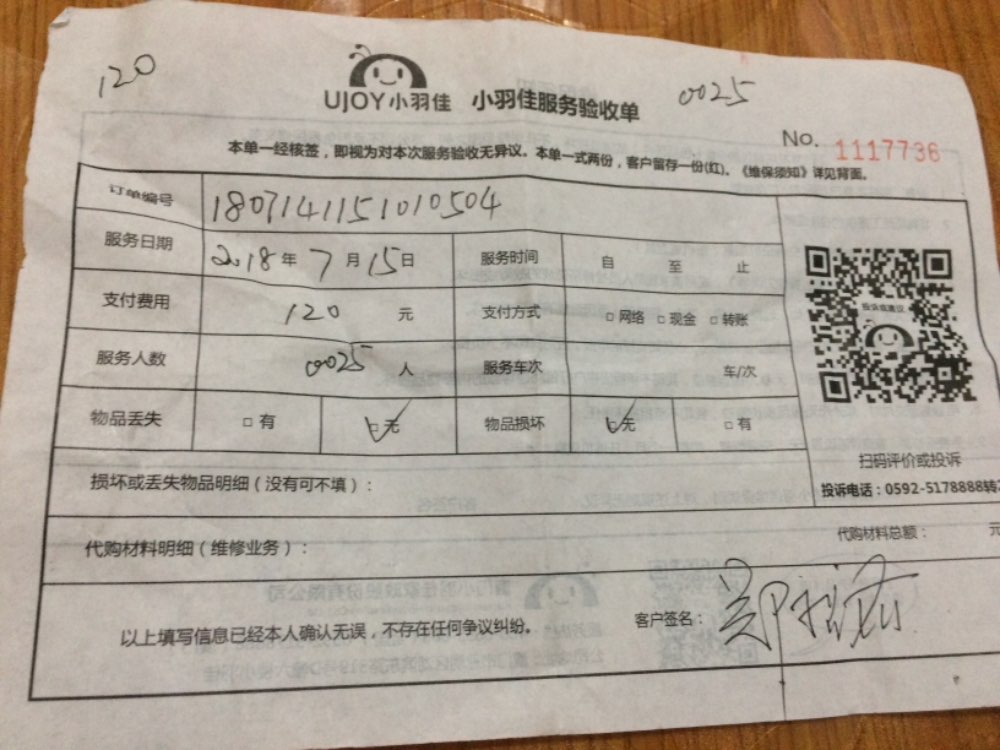 120
UJOY小羽佳 小羽佳服务验收单 0025
No. 1117736
本单一经核签，即视为对本次服务验收无异议。本单一式两份，客户留存一份(红)。《维保须知》详见背面。
订单编号 1807141151010504
服务日期 2018年7月15日 服务时间 自 至 止
支付费用 120 元 支付方式 □网络 □现金 □转账
服务人数 0025 人 服务车次 车/次
物品丢失 □有 ☑无 物品损坏 ☑无 □有
投诉或建议
扫码评价或投诉
投诉电话：0592-5178888转
损坏或丢失物品明细（没有可不填）：
代购材料明细（维修业务）： 代购材料总额： 元
以上填写信息已经本人确认无误，不存在任何争议纠纷。 客户签名：